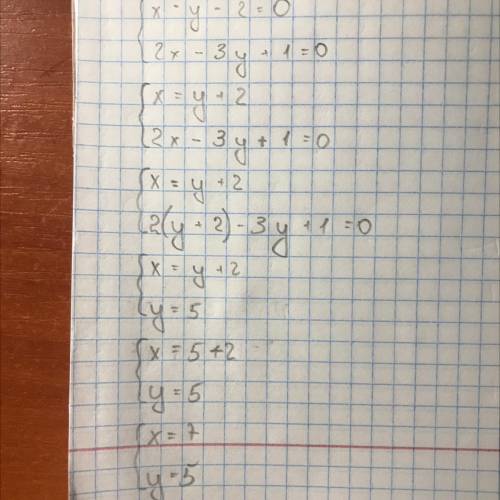 x - y - 2 = 0
2x - 3y + 1 = 0
x = y + 2
2x - 3y + 1 = 0
x = y + 2
2(y + 2) - 3y + 1 = 0
x = y + 2
y = 5
x = 5 + 2
y = 5
x = 7
y = 5